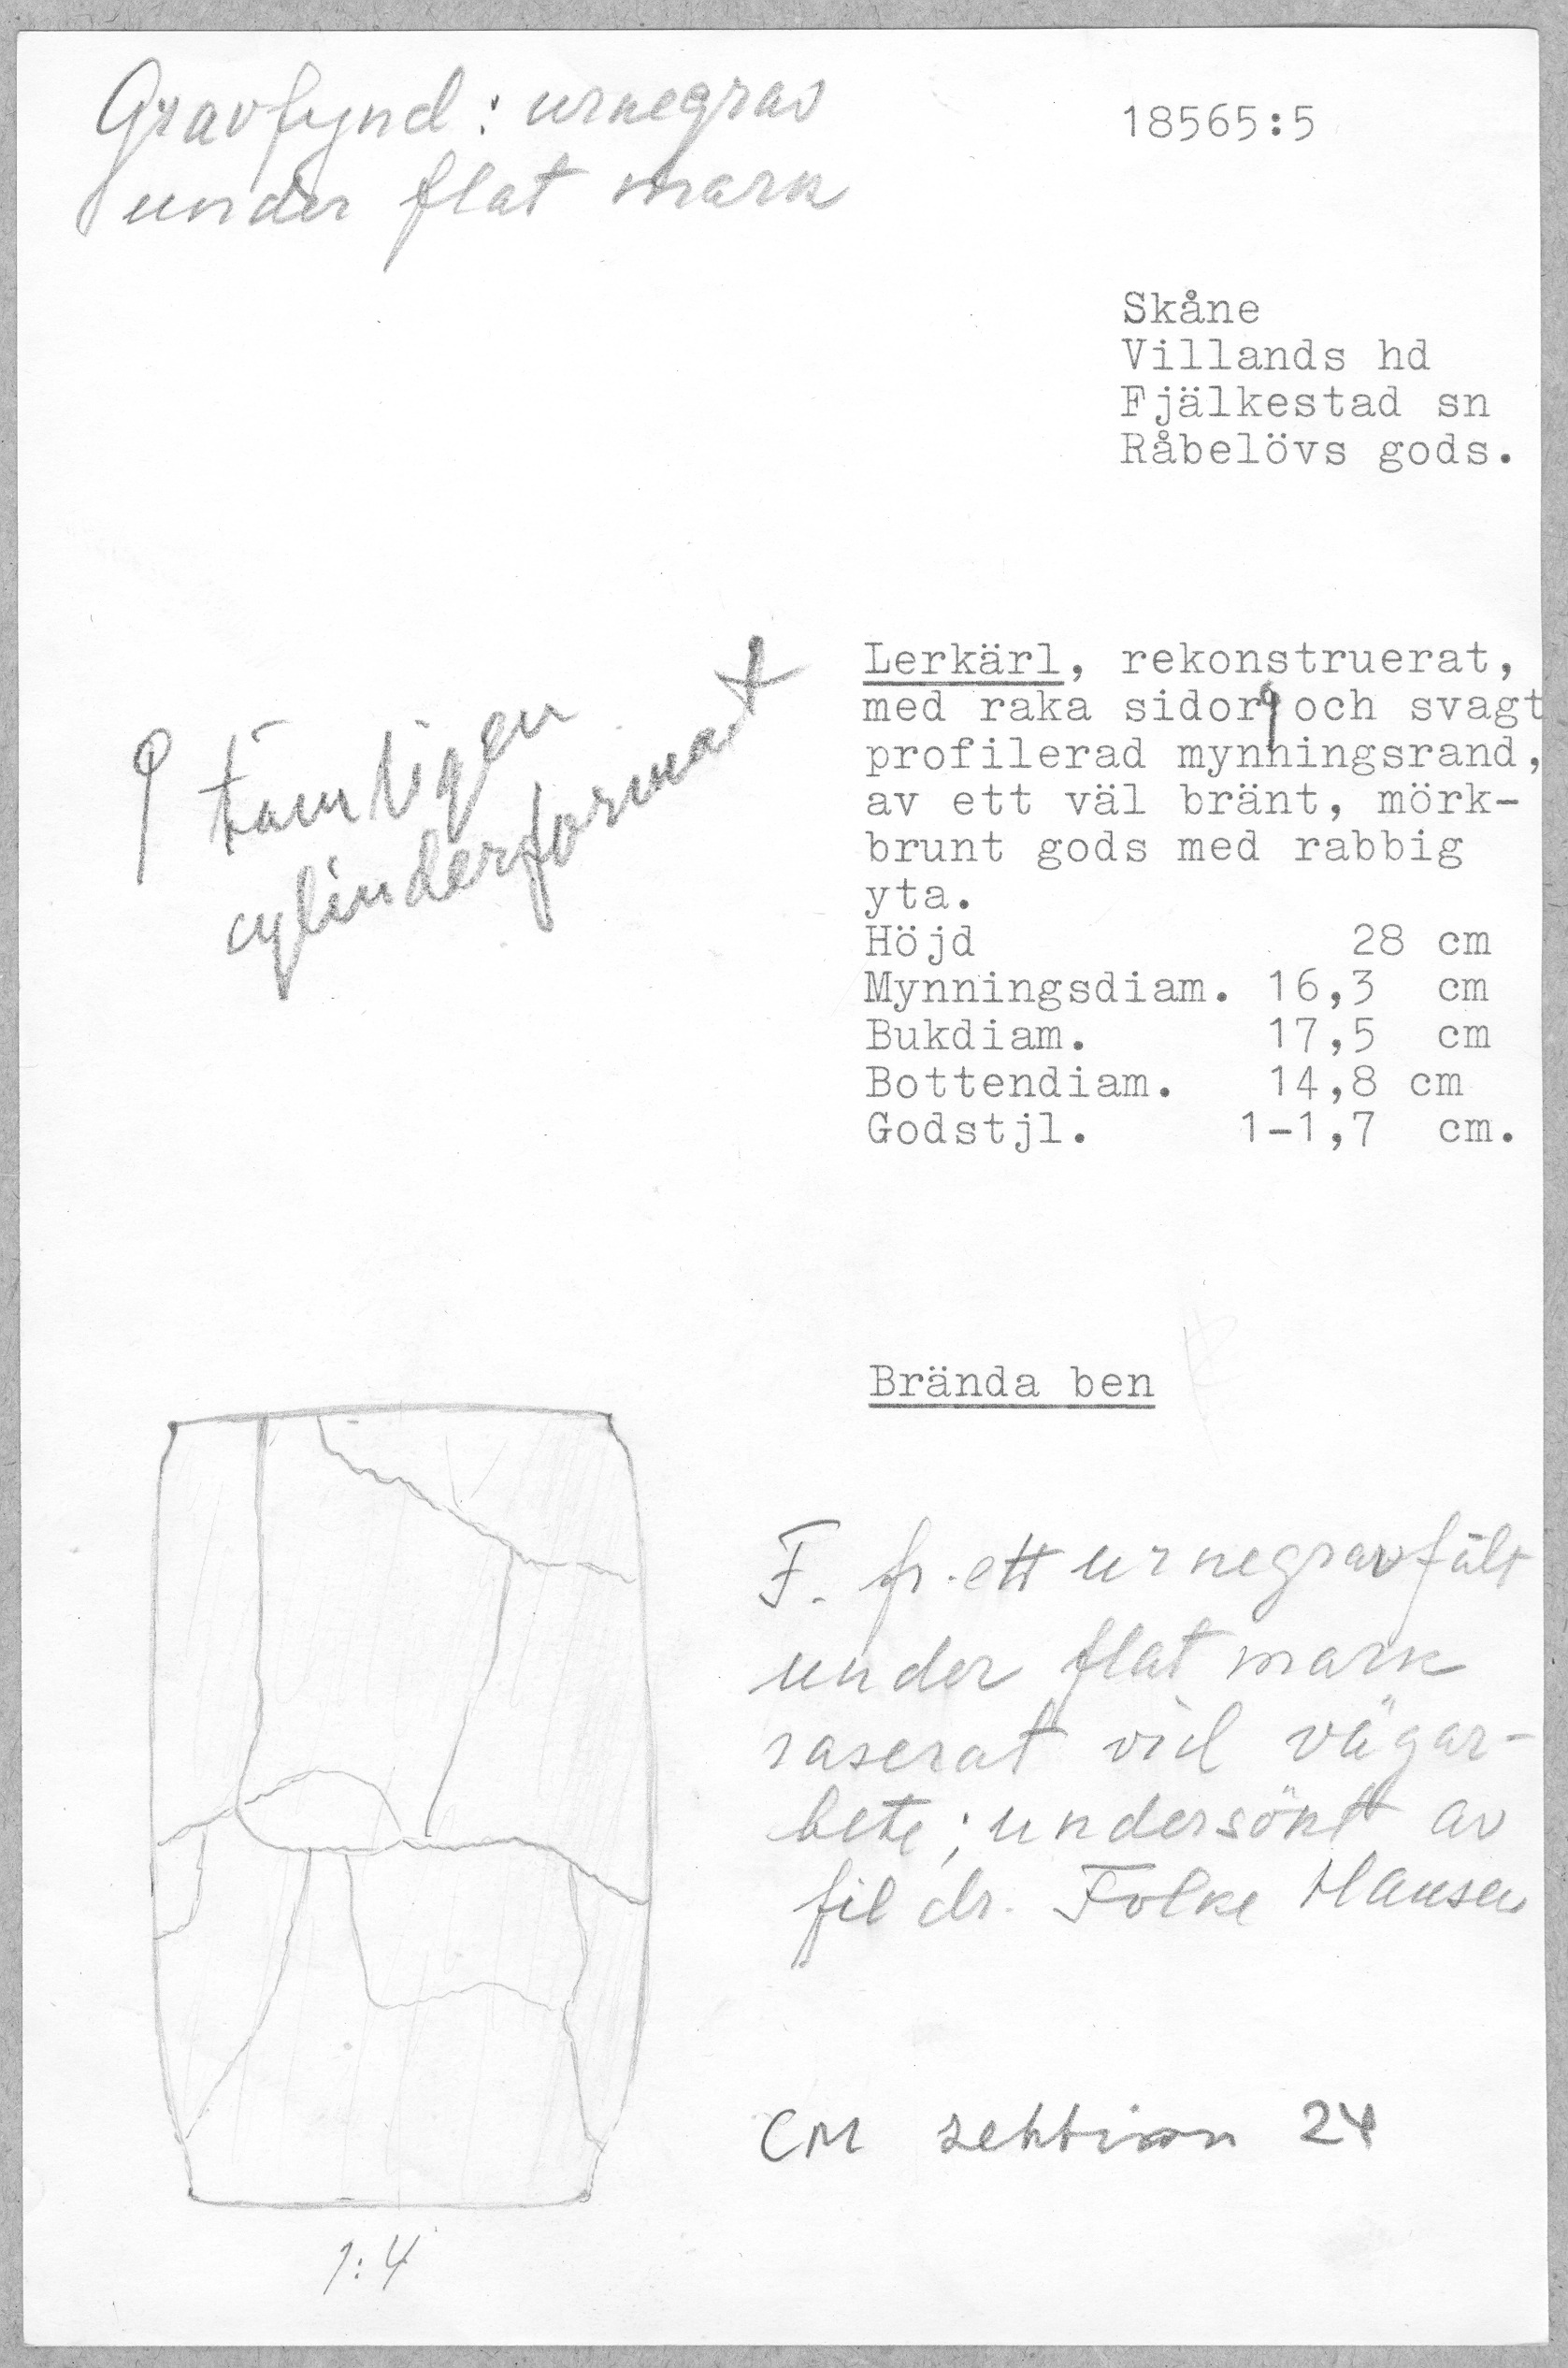 Gravfynd: urnegrav
under flat mark
18565:5
Skåne
Villands hd
Fjälkestad sn
Råbelövs gods.
tämligen
cylinderformat
Lerkärl, rekonstruerat,
med raka sidor och svagt
profilerad mynningsrand,
av ett väl bränt, mörk-
brunt gods med rabbig
yta.
Höjd 28 cm
Mynningsdiam. 16,3 cm
Bukdiam. 17,5 cm
Bottendiam. 14,8 cm
Godstjl. 1-1,7 cm.
Brända ben
F. fr. ett urnegravfält
under flat mark
raserat vid vägar-
bete; undersökt av
fil dr. Folke Hansen
CM sektion 24
1:4